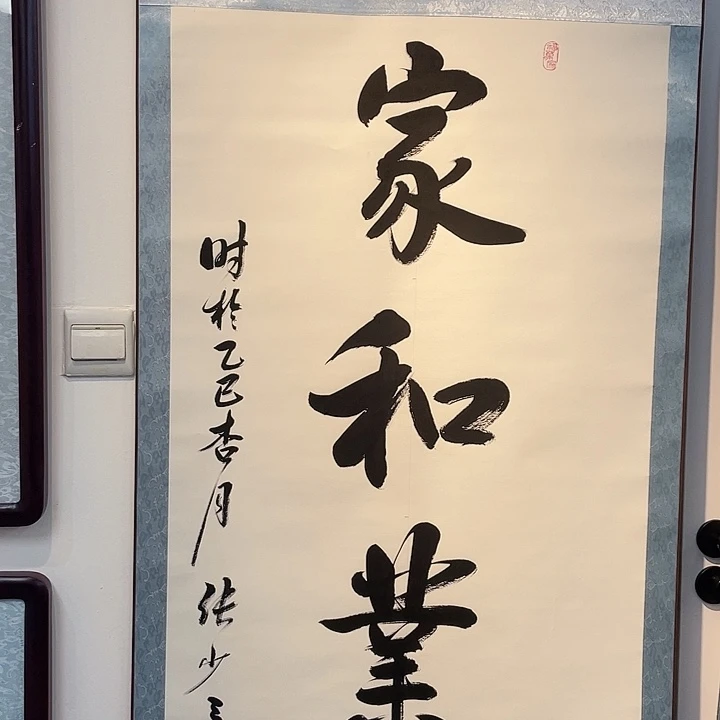 家和業
时於乙巳杏月张少